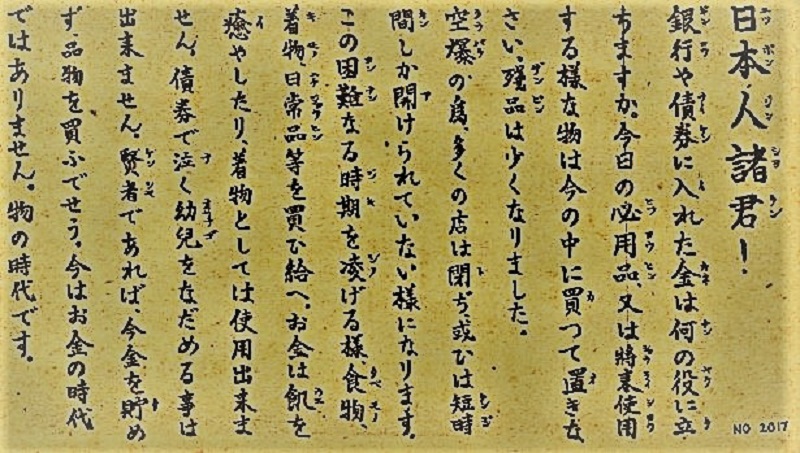 日本人諸君！
銀行や債券に入れた金は何の役に立
ちますか。今日の必用品、又は將来使用
する様な物は今の中に買つて置きな
さい、殘品は少くなりました。
空爆の為、多くの店は閉ぢ、或ひは短時
間しか開けられていない様になります。
この困難なる時期を凌げる様、食物、
着物、日常品等を買ひ給へ。お金は飢を
癒やしたり、着物としては使用出来ま
せん、債券で泣く幼兒をなだめる事は
出来ません。賢者であれば、今金を貯め
ず、品物を買ふでせう。今はお金の時代
ではありません。物の時代です。
NO 2017